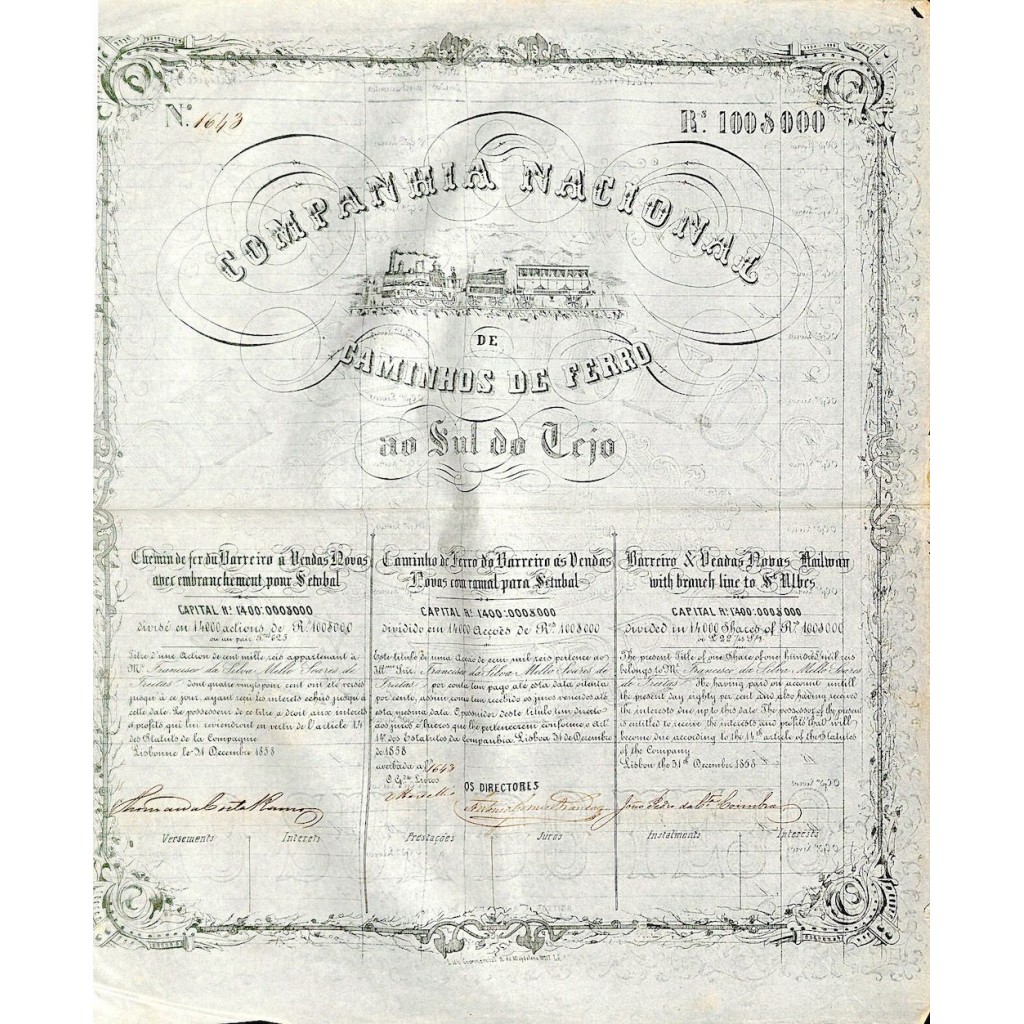 Nº 1643
Rˢ. 100$000
COMPANHIA NACIONAL
DE
CAMINHOS DE FERRO
ao Sul do Tejo
Chemin de fer du Barreiro à Vendas Novas
avec embranchement pour Setubal
CAPITAL Rˢ. 1400:000$000
divisé en 14000 actions de Rˢ. 100$000
ou au pair
Titre d'une Action de cent mille reis appartenant à
Mʳ. Francisco da Silva Mello Soares de
Freitas dont quatre vingt pour cent ont été versés
jusqu'à ce jour ayant reçu les interets echus jusqu'à
cette date. Le possesseur de ce titre a droit aux interets
et profits que lui reviendront en vertu de l'article 14
des Statuts de la Compagnie
Lisbonne le 31 Decembre 1858
Caminho de Ferro do Barreiro ás Vendas
Novas com ramal para Setubal
CAPITAL Rˢ. 1400:000$000
dividido em 14000 Acções de Rˢ. 100$000
Este titulo de uma Acção de cem mil reis pertence ao
Illᵐᵒ Snr. Francisco da Silva Mello Soares de
Freitas por conta tem pago até esta data oitenta
por cento, assim como tem recebido os juros vencidos até
esta mesma data. O possuidor deste titulo tem direito
aos juros e lucros que lhe pertencerem conforme o artº
14º dos Estatutos da Companhia. Lisboa 31 de Dezembro
de 1858
averbada a fˡ 1643
O Gᵈᵃ Livros
OS DIRECTORES
Barreiro & Vendas Novas Railway
with branch line to Sᵗ Ubes
CAPITAL Rˢ. 1400:000$000
divided in 14000 Shares of Rˢ. 100$000
or £ 22
The present Title of one Share of one hundred mill reis
belongs to Mʳ. Francisco da Silva Mello Soares
de Freitas The having paid on account untill
the present day eighty per cent and also having received
the interests due up to this date. The possessor of the present
is entitled to receive the interests and profits that will
become due according to the 14ᵗʰ article of the Statutes
of the Company
Lisbon the 31ᵗʰ December 1858
João Pedro da Cᵗᵃ Coimbra
Versements Interets
Prestações Juros
Instalments Interests